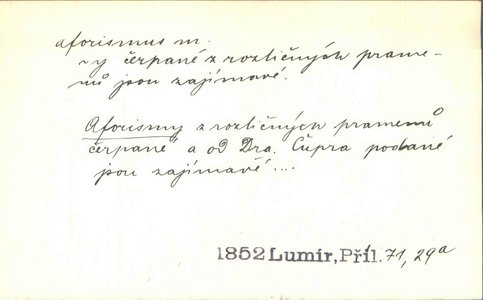 aforismus m.
~y čerpané z rozličných prame-
nů jsou zajímavé.
Aforismy z rozličných pramenů
čerpané a od Dra. Čupra podané
jsou zajímavé ...
1852 Lumír, Příl. 71, 29a